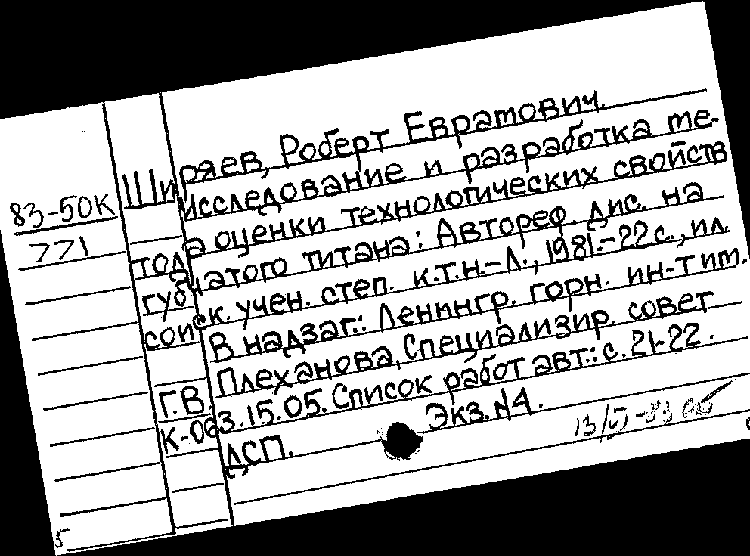 83-50К
771
Ширяев, Роберт Евратович.
Исследование и разработка ме-
тода оценки технологических свойств
губчатого титана: Автореф. дис. на
соиск. учен. степ. к.т.н.-Л., 1981.-22с., ил.
В надзаг.: Ленингр. горн. ин-т им.
Г.В. Плеханова, Специализир. совет
К-063.15.05. Список работ авт.: с. 21-22.
ДСП. Экз. №4.
5